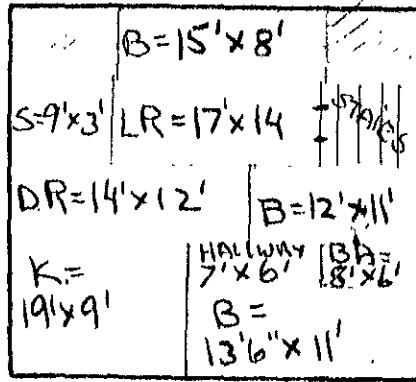 B=15'x8'
S=9'x3' LR=17'x14 STAIRS
DR=14'x12' B=12'x11'
K= HALLWAY BA=
19'x9' 7'x6' 8'x6'
B=
13'6"x11'